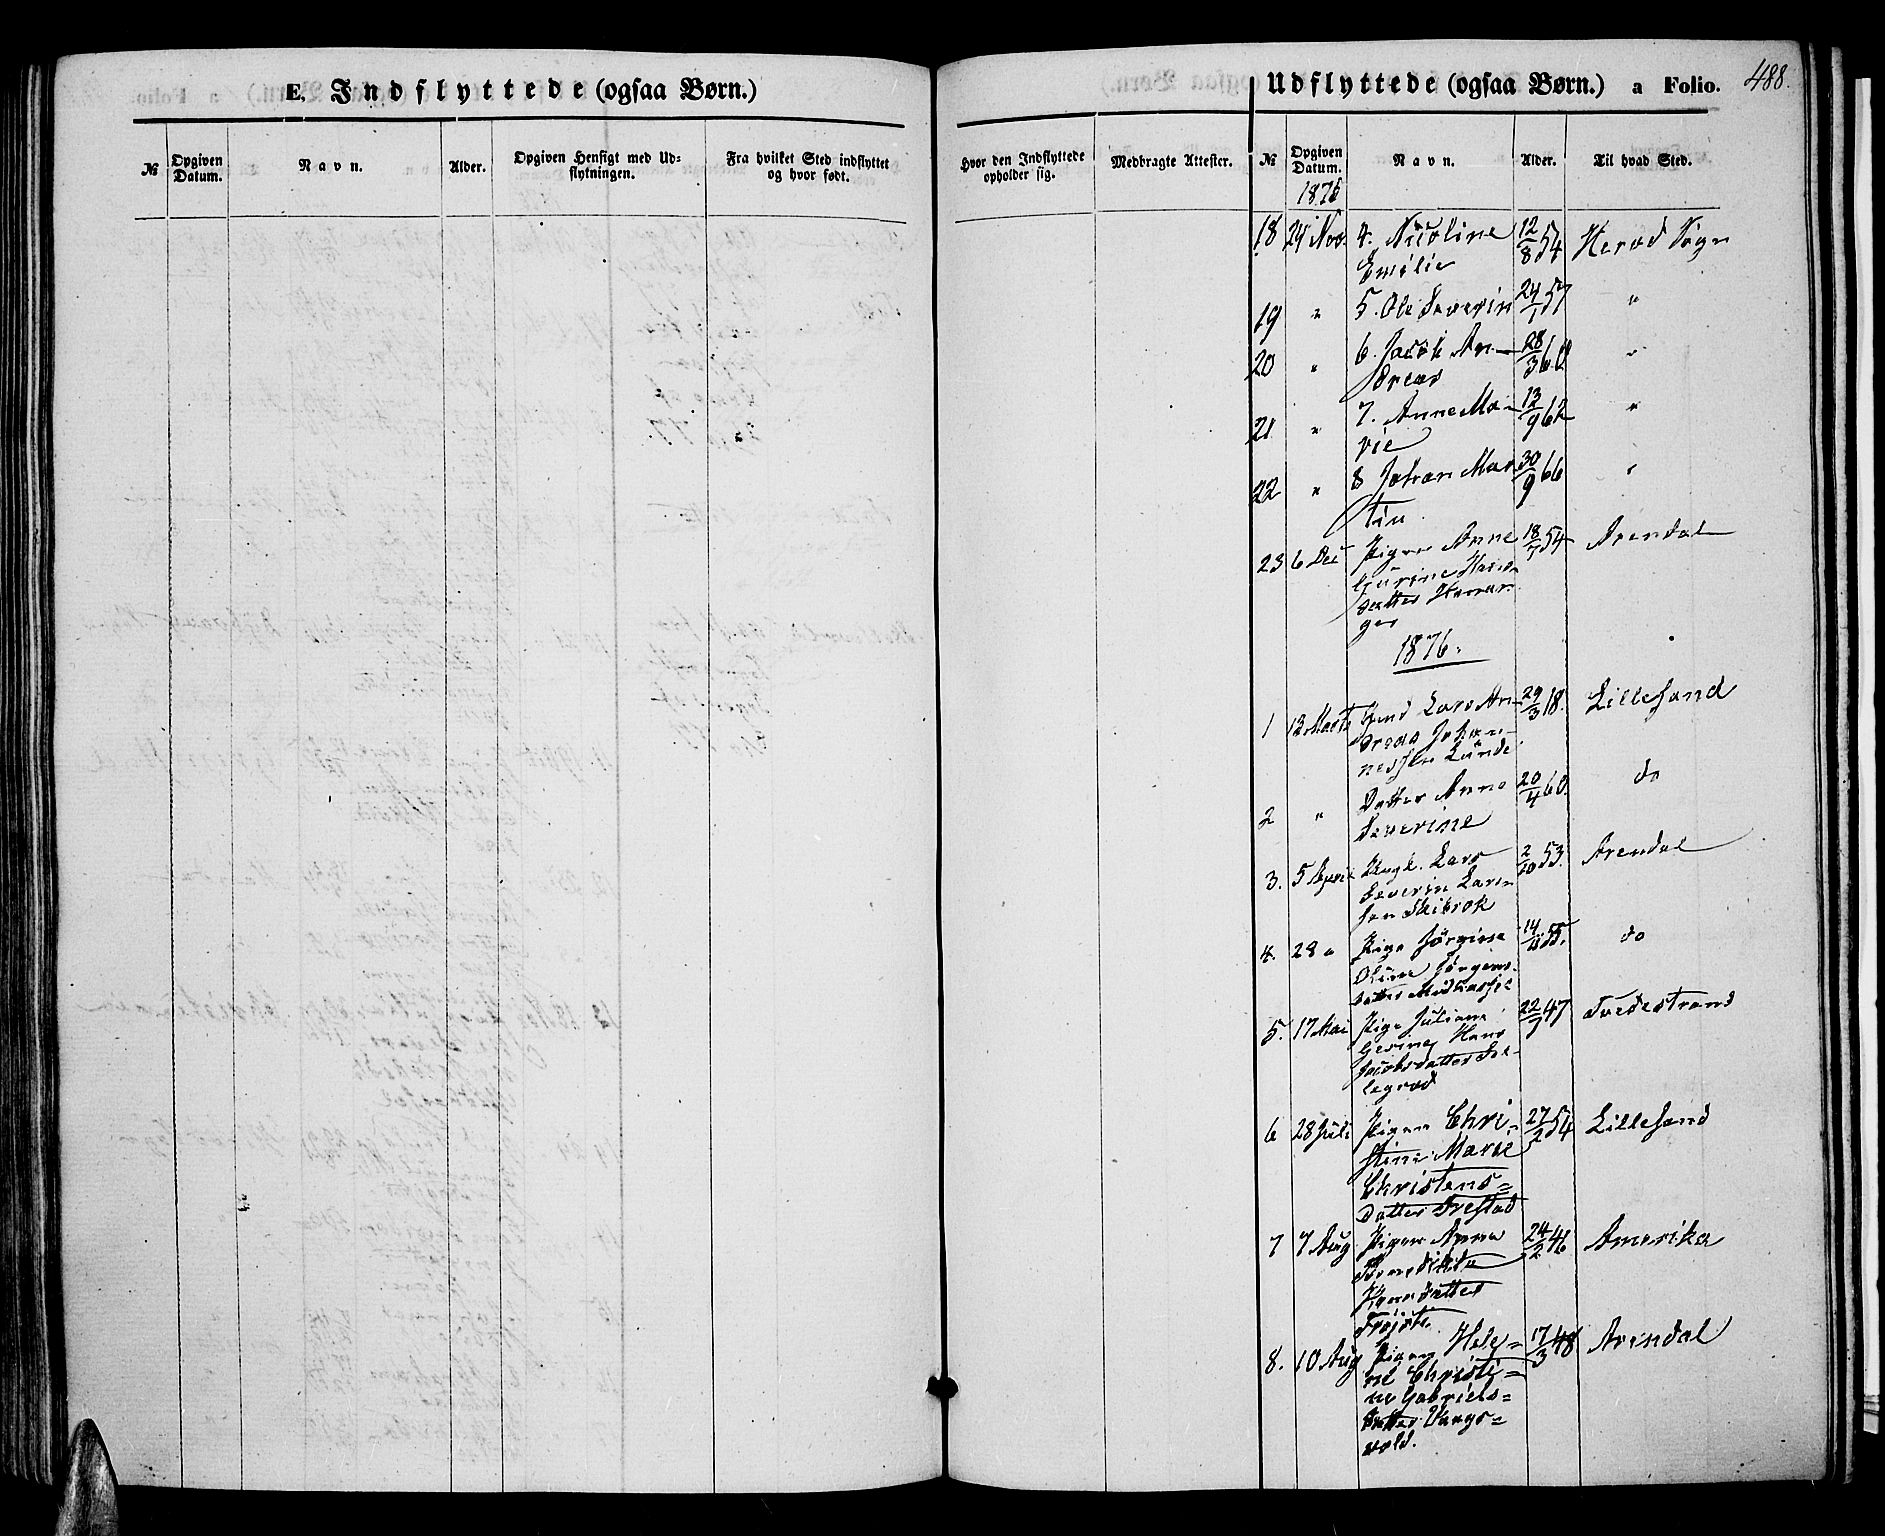 E. Indflyttede (ogsaa Børn.)
№ Opgiven Datum. Navn. Alder. Opgiven Hensigt med Udflytningen. Fra hvilket Sted indflyttet og hvor født.
Udflyttede (ogsaa Børn.) a Folio. 488.
Hvor den Indflyttede opholder sig. Medbragte Attester. № Opgiven Datum. Navn. Alder. Til hvad Sted.
1875
18 24 Nov. 4. Nicoline 12/8 54 Herod Sogn
Emilie
19 " 5. Ole Severin 24/1 57 "
20 " 6. Jacob An- 28/3 60 "
dreas
21 " 7. Anne Ma- 13/9 62 "
rie
22 " 8 Johan Mar 30/9 66 "
tin
23 6 Dec Pigen Anne 18/7 54 Arendal
Gurine Hans-
datter
1876.
1 12 Marts Lars An- 29/3 18. Lillesand
dreas Johan-
nessen Lunde
2 " Datter Anne 20/4 60. do
Severine
3. 5 April Ungk. Lars 2/10 53. Arendal
Severin Lars-
sen Skibrok
4. 28 " Pige Jørgine 14/11 55. do
Oline Jørgens-
datter
5. 17 Mai Pige Juliane 22/7 47 Tvedestrand
Gesine Hans
Jacobsdatter
6 28 Juli Pigen Chri- 27/2 54 Lillesand
stine Marie
Christens=
datter Trestad
7 7 Aug Pigen Anne 24/2 46 Amerika
Hansdatter
8. 10 Aug Pigen Hele= 17/3 48 Arendal
ne Christi=
ne Gabriels=
datter Vaags=
vold.